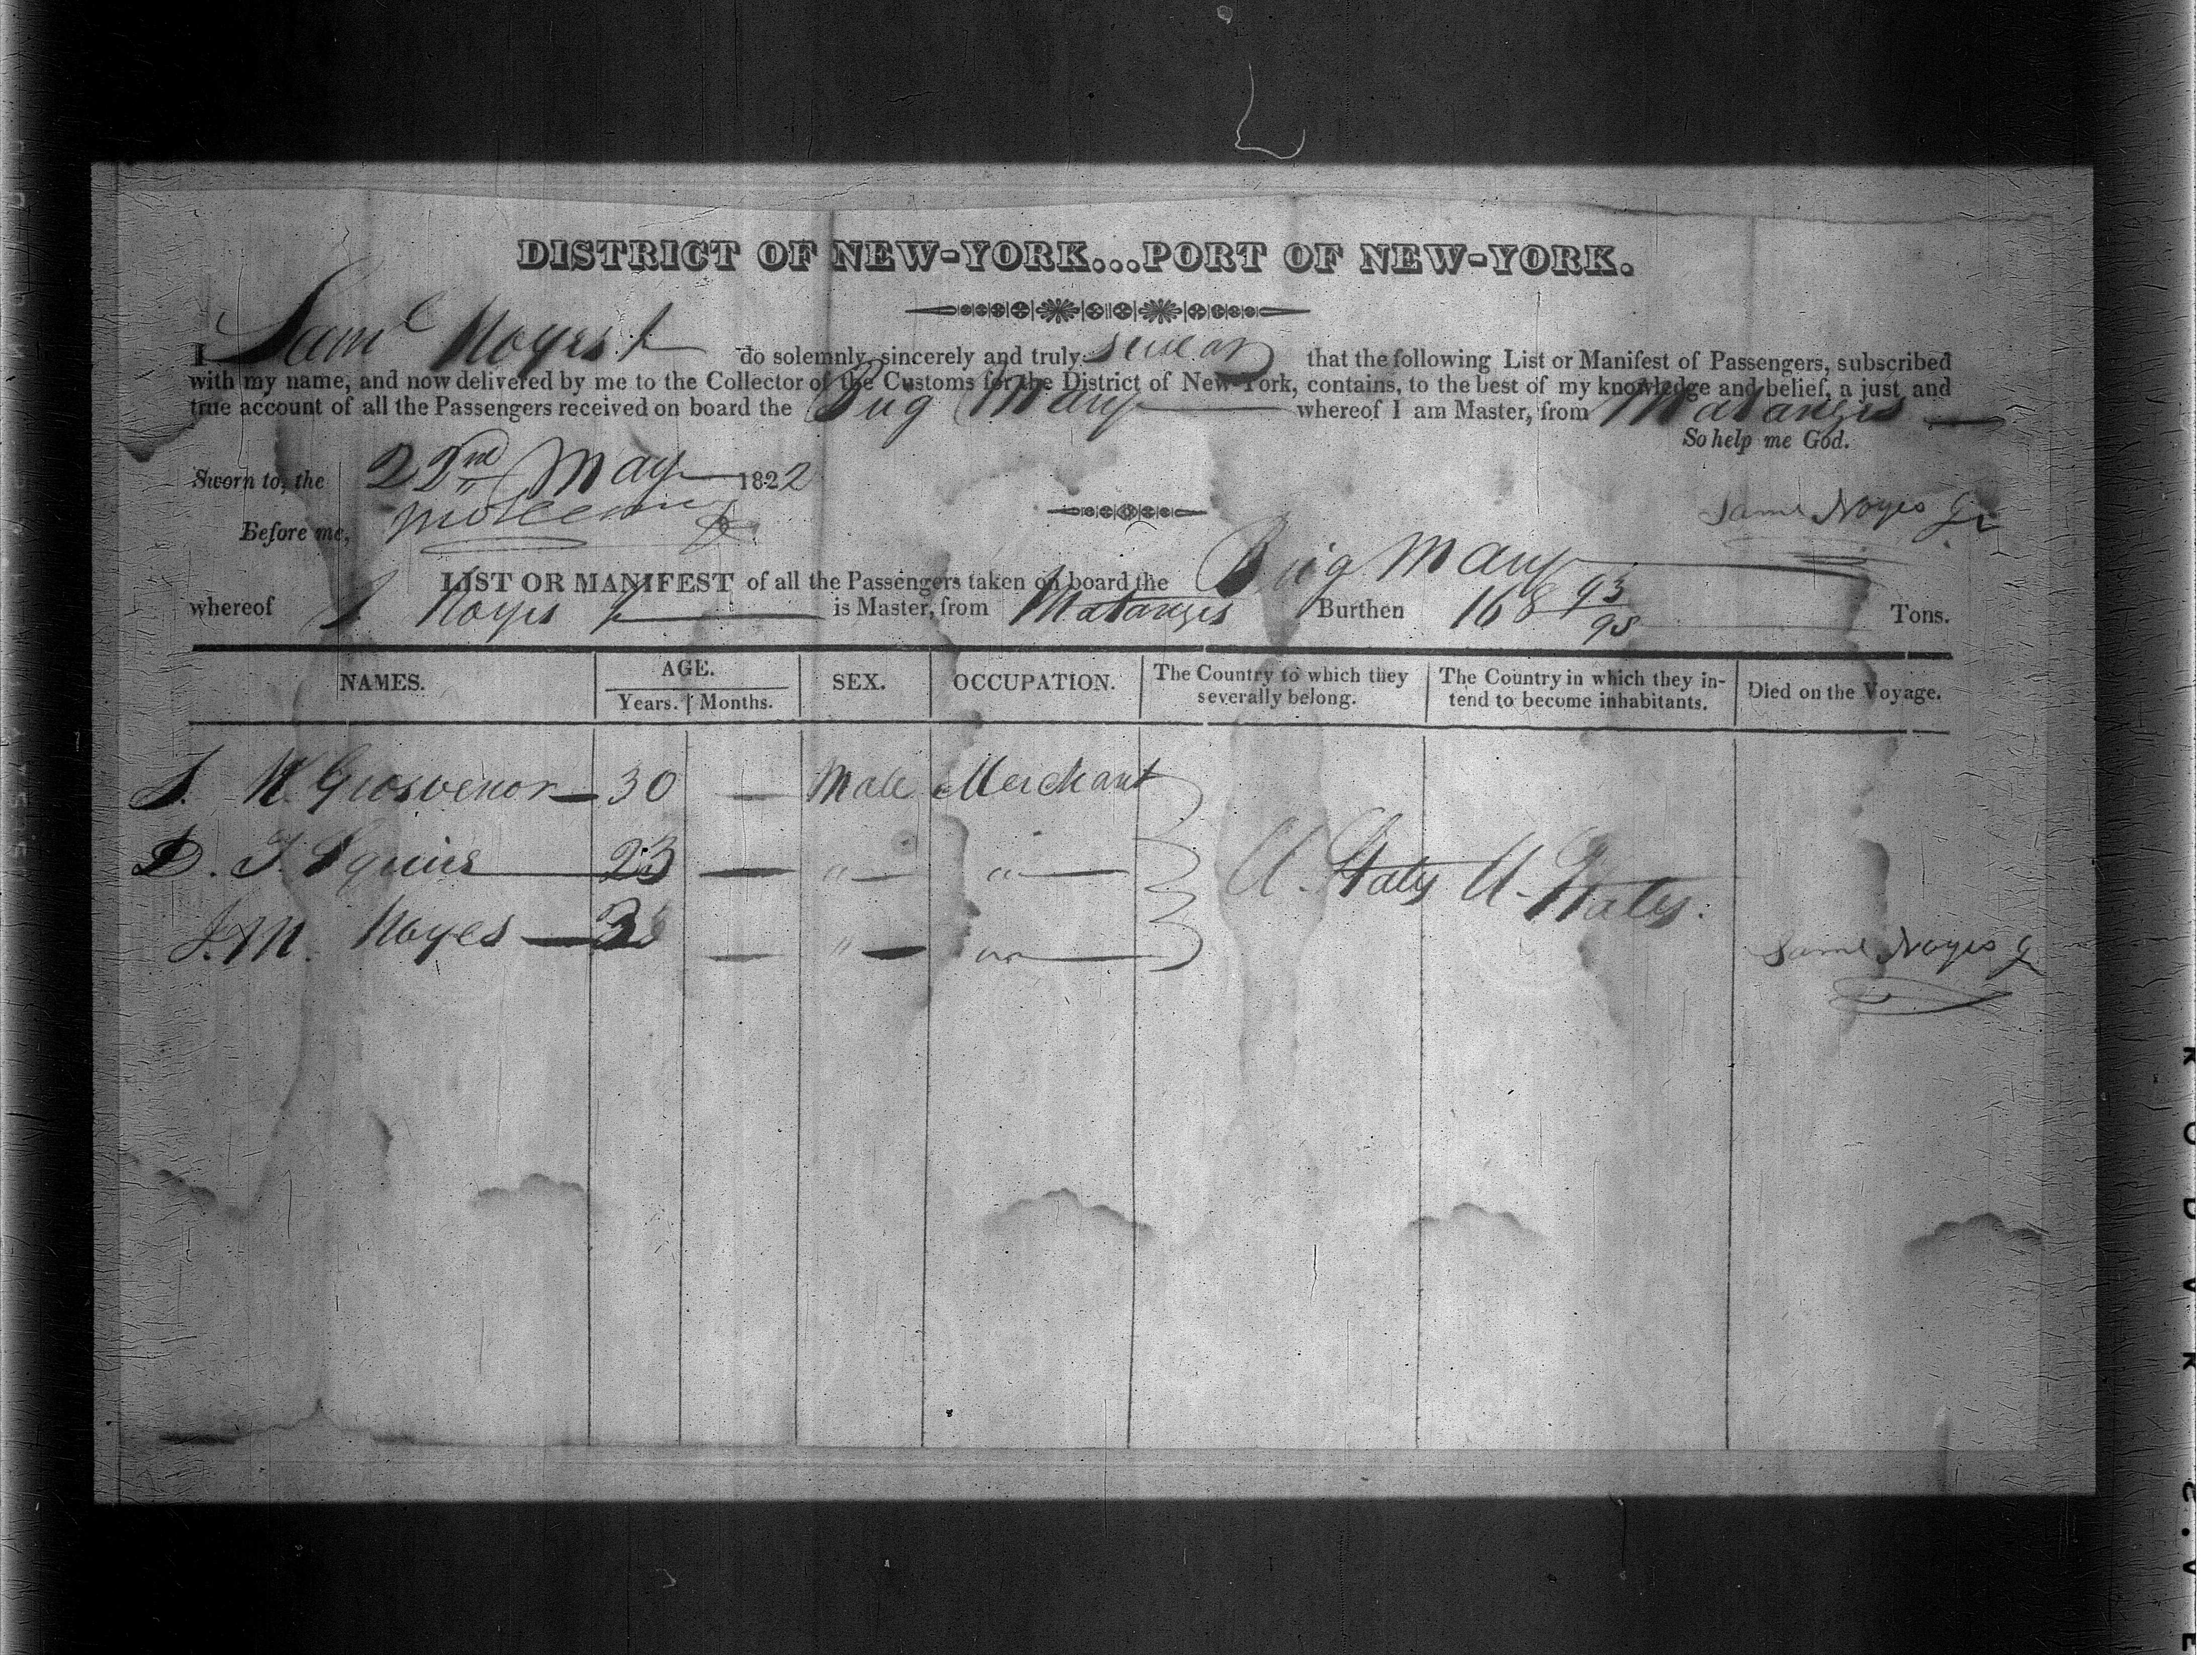 DISTRICT OF NEW-YORK...PORT OF NEW-YORK.
I Saml Noyes Jr do solemnly, sincerely and truly swear that the following List or Manifest of Passengers, subscribed
with my name, and now delivered by me to the Collector of the Customs for the District of New-York, contains, to the best of my knowledge and belief, a just and
true account of all the Passengers received on board the Brig Mary whereof I am Master, from Matanzis
So help me God.
Sworn to, the 22nd May 1822
Saml Noyes Jr
Before me,
LIST OR MANIFEST of all the Passengers taken on board the Brig Mary
whereof S Noyes Jr is Master, from Matanzis Burthen 168 93/95 Tons.
NAMES. AGE. SEX. OCCUPATION. The Country to which they severally belong. The Country in which they in-tend to become inhabitants. Died on the Voyage.
Years. Months.
S. W. Grosvenor 30 — Male Merchant
D. T. Squire 23 — " — " —
U. States U. States.
J. M. Noyes — " — " —
Saml Noyes J